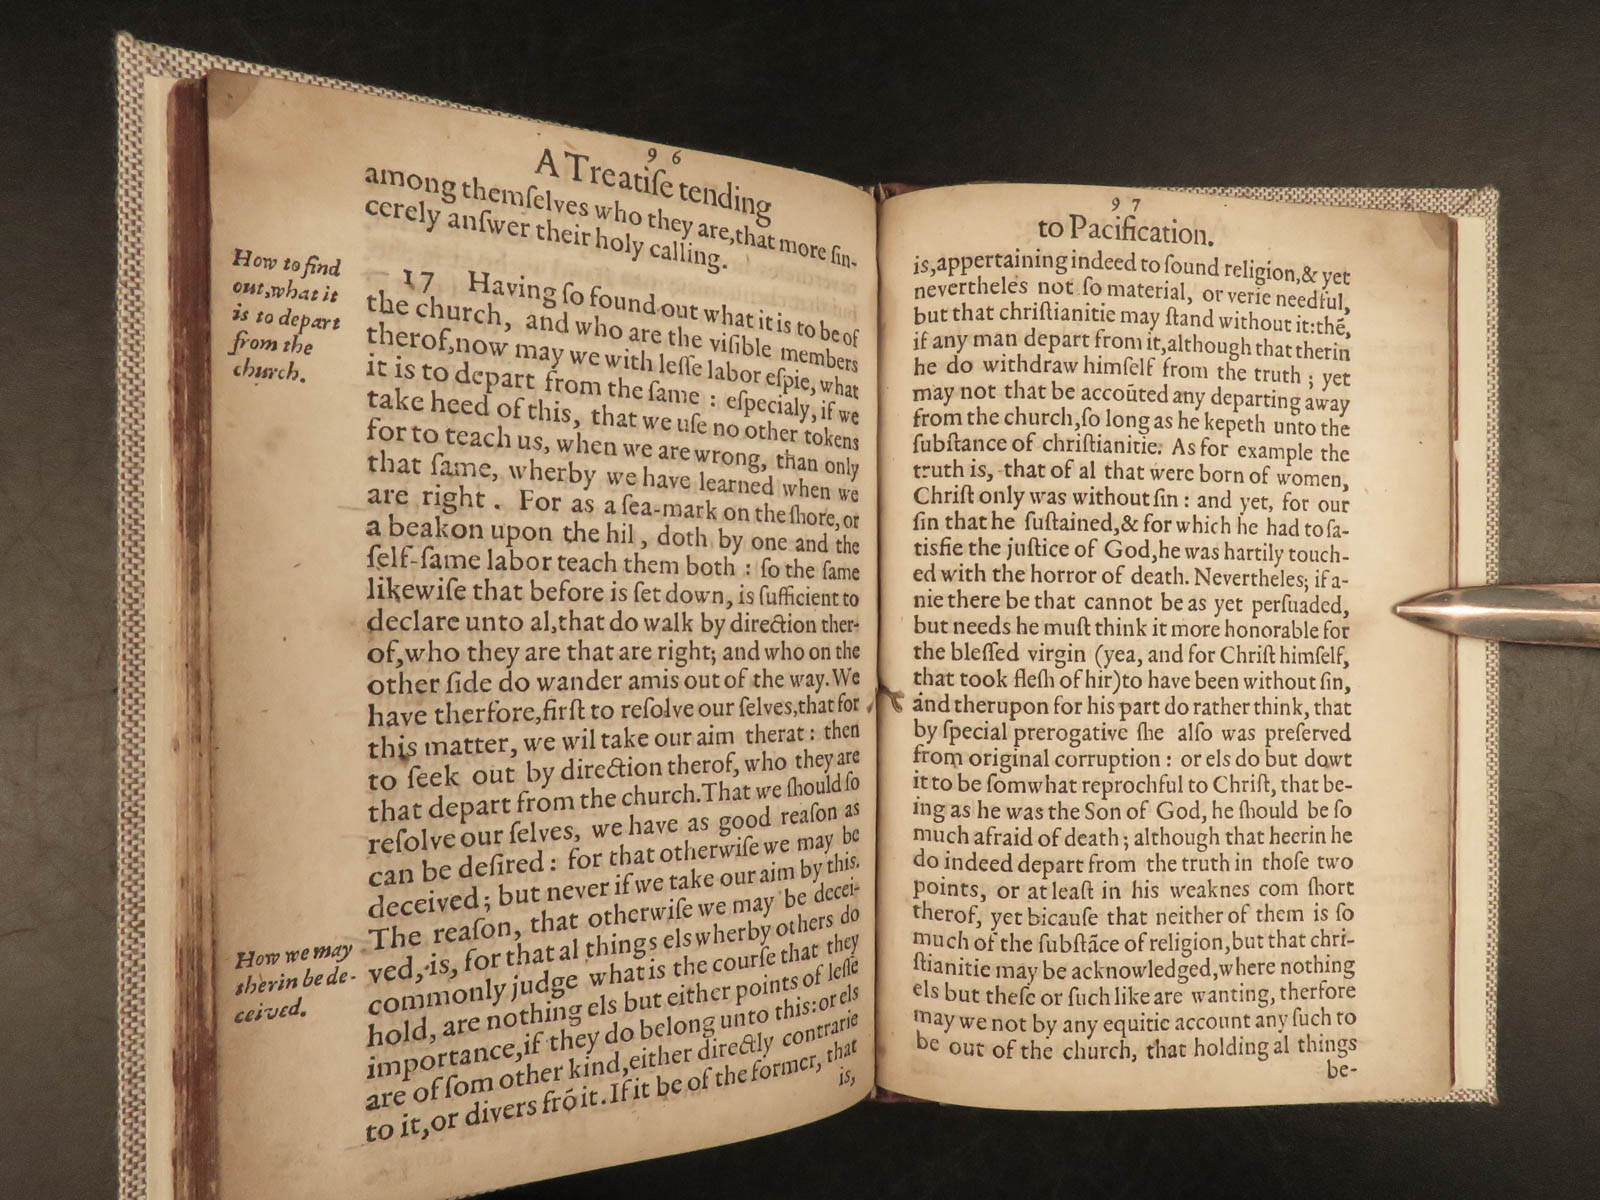 96
A Treatiſe tending
among themſelves who they are,that more ſin-
cerely anſwer their holy calling.
How to find
out,what it
is to depart
from the
church.
17 Having ſo found out what it is to be of
the church, and who are the viſible members
therof,now may we with leſſe labor eſpie, what
it is to depart from the ſame : eſpecialy, if we
take heed of this, that we uſe no other tokens
for to teach us, when we are wrong, than only
that ſame, wherby we have learned when we
are right . For as a ſea-mark on the ſhore, or
a beakon upon the hil , doth by one and the
ſelf-ſame labor teach them both : ſo the ſame
likewiſe that before is ſet down, is ſufficient to
declare unto al,that do walk by direction ther-
of,who they are that are right; and who on the
other ſide do wander amis out of the way. We
have therfore,firſt to reſolve our ſelves,that for
this matter, we wil take our aim therat : then
to ſeek out by direction therof, who they are
that depart from the church.That we ſhould ſo
reſolve our ſelves, we have as good reaſon as
can be deſired : for that otherwiſe we may be
deceived ; but never if we take our aim by this.
How we may
therin be de-
ceived.
The reaſon, that otherwiſe we may be decei-
ved, is, for that al things els wherby others do
commonly judge what is the courſe that they
hold, are nothing els but either points of leſſe
importance,if they do belong unto this:or els
are of ſom other kind,either directly contrarie
to it,or divers frō it. If it be of the former, that
is,
97
to Pacification.
is,appertaining indeed to ſound religion,& yet
nevertheles not ſo material, or verie needful,
but that chriſtianitie may ſtand without it:thē,
if any man depart from it,although that therin
he do withdraw himſelf from the truth ; yet
may not that be accoūted any departing away
from the church,ſo long as he kepeth unto the
ſubſtance of chriſtianitie. As for example the
truth is, that of al that were born of women,
Chriſt only was without ſin : and yet, for our
ſin that he ſuſtained,& for which he had to ſa-
tisfie the juſtice of God,he was hartily touch-
ed with the horror of death. Nevertheles; if a-
nie there be that cannot be as yet perſuaded,
but needs he muſt think it more honorable for
the bleſſed virgin (yea, and for Chriſt himſelf,
that took fleſh of hir)to have been without ſin,
and therupon for his part do rather think, that
by ſpecial prerogative ſhe alſo was preſerved
from original corruption : or els do but dowt
it to be ſomwhat reprochful to Chriſt, that be-
ing as he was the Son of God, he ſhould be ſo
much afraid of death ; although that heerin he
do indeed depart from the truth in thoſe two
points, or at leaſt in his weaknes com ſhort
therof, yet bicauſe that neither of them is ſo
much of the ſubſtāce of religion,but that chri-
ſtianitie may be acknowledged,where nothing
els but theſe or ſuch like are wanting, therfore
may we not by any equitie account any ſuch to
be out of the church, that holding al things
be-